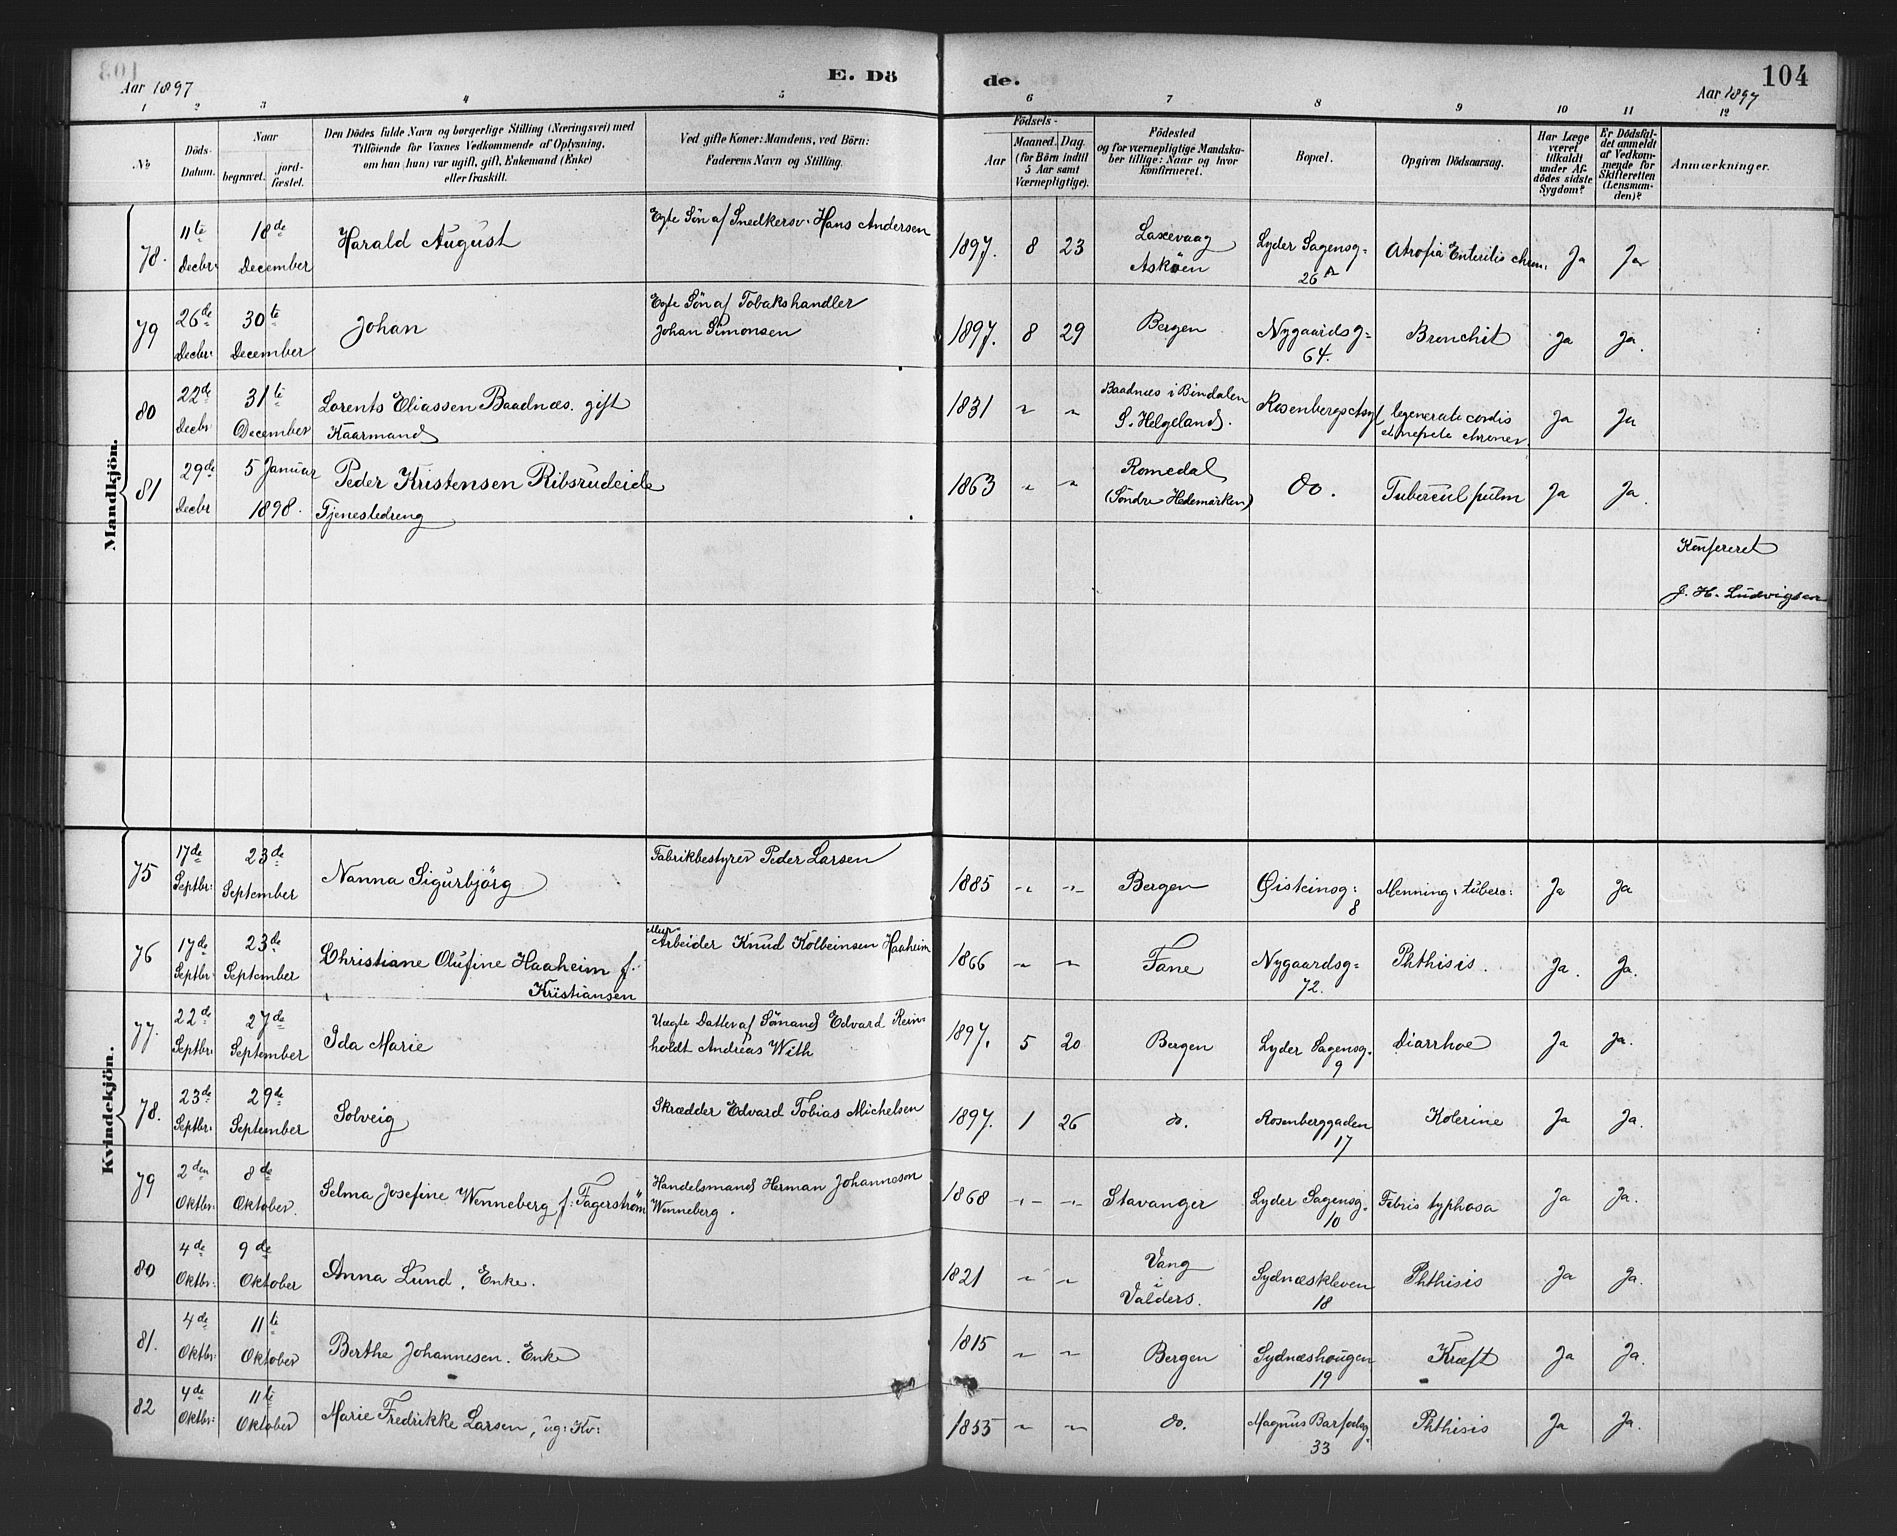 Aar 1897
E. Dö
de.
Aar 1897
104
1 2 3 4 5 6 7 8 9 10 11 12
No
Döds-Datum.
Naar
begravet.
jord-fæstet.
Den Dödes fulde Navn og borgerlige Stilling (Næringsvei) med
Tilföiende for Voxnes Vedkommende af Oplysning,
om han (hun) var ugift, gift, Enkemand (Enke)
eller fraskilt.
Ved gifte Koner: Mandens, ved Börn:
Faderens Navn og Stilling.
Födsels-
Aar
Maaned. Dag.
(for Börn indtil
5 Aar samt
Værnepligtige).
Födested
og for værnepligtige Mandska-
ber tillige: Naar og hvor
konfirmeret.
Bopæl.
Opgiven Dödsaarsag.
Har Læge
været
tilkaldt
under Af-
dödes sidste
Sygdom?
Er Dödsfal-
det anmeldt
af Vedkom-
mende for
Skifteretten
(Lensman-
den)?
Anmærkninger.
Mandkjön.
78. 11te Decbr: 18de December Harald August Egte Søn af Snedkersv. Hans Andersen 1897. 8 23 Laxevaag Askøen Lyder Sagensg. 26 A Atrofia Enteritis chron. Ja Ja
79 26de Decbr: 30te December Johan Egte Søn af Tobakshandler Johan Simonsen 1897. 8 29 Bergen Nygaardsg= 64. Bronchit Ja Ja.
80 22de Decbr 31te December Lorents Eliassen Baadnæs. gift Kaarmand 1831 " " Baadnæs i Bindalen S. Helgeland. cordis Ja Ja
81 29de Decbr 5 Januar 1898. Peder Kristensen Ribsrudeide Tjenestedreng 1863 " " Romedal (Søndre Hedemarken) Do. Tubercul pulm Ja Ja.
Konfereret
J. H. Ludvigsen
Kvindekjön.
75 17de Septbr: 23de September Nanna Sigurbjörg Fabrikbestyrer Peder Larsen 1885 " " Bergen Øisteinsg: 8 Menning: tuberc: Ja Ja
76 17de Septbr: 23de September Christiane Olufine Haaheim f: Kristiansen Arbeider Knud Kolbeinsen Haaheim 1866 " " Fane Nygaardsg= 72. Phthisis. Ja. Ja.
77. 22de Septbr: 27de September Ida Marie Uegte Datter af Sømand Edvard Rein-
holdt Andreas With 1897. 5 20 Bergen Lyder Sagensg. 9 Diarrhoe Ja Ja.
78. 23de Septbr: 29de September Solveig Skrædder Edvard Tobias Michelsen 1897. 1 26 do. Rosenberggaden 17 Kolerine Ja Ja.
79 2den Oktbr: 8de Oktober. Selma Josefine Wenneberg f: Fagerstrøm Handelsmand Herman Johanneson Wenneberg. 1868 " " Stavanger Lyder Sagensg. 10 Febris typhosa Ja Ja.
80 4de Oktbr: 9de Oktober Anna Lund, Enke. 1821 " " Vang i Valders. Sydnæskleven 18 Phthisis Ja Ja.
81. 4de Oktbr: 11te Oktober Berthe Johannesen. Enke 1815 " " Bergen Sydnæshougen 19 Kræft Ja Ja.
82 4de Oktbr: 11te Oktober Marie Fredrikke Larsen, ug: Kv: 1855 " " do. Magnus Barfodsg. 33 Phthisis Ja Ja.